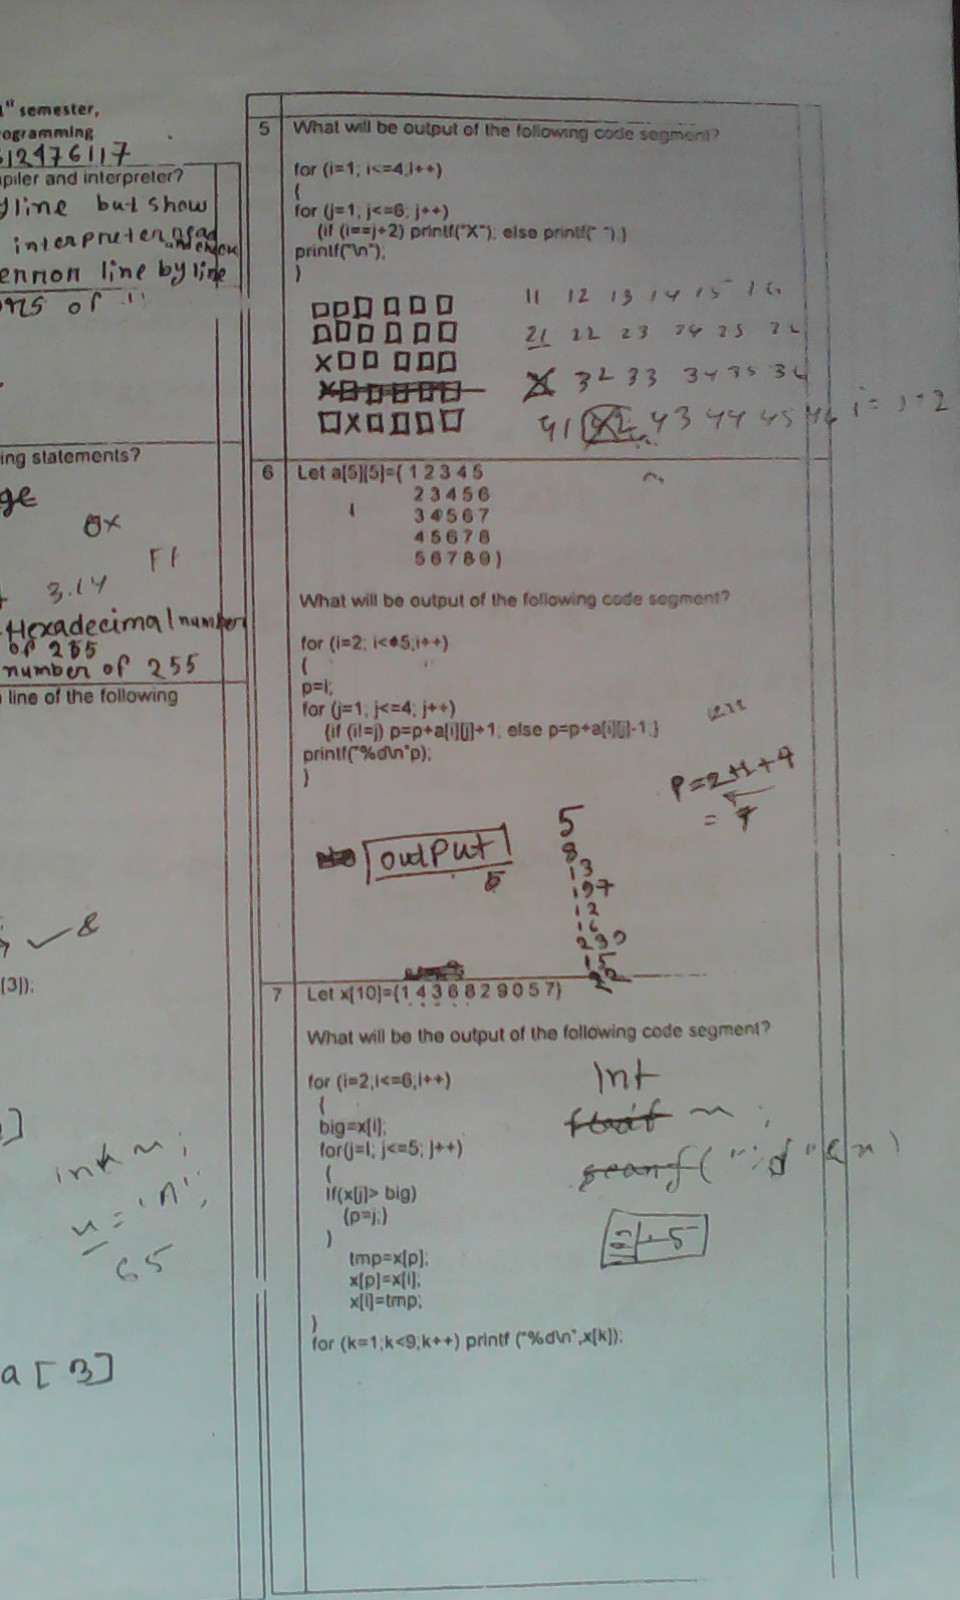 " semester,
ogramming
612476117
piler and interpreter?
yline but show
interpreter read
and check
error line by line
ons of "
ing statements?
ge
0x
FF
3.14
Hexadecimal number
of 255
number of 255
line of the following
&
[3]);
]
int n;
n = 'A';
65
a [ 3 ]
5 What will be output of the following code segment?
for (i=1; i<=4,i++)
{
for (j=1; j<=6; j++)
{if (i==j+2) printf("X"); else printf(" ");}
printf("\n");
}
11 12 13 14 15 16
21 22 23 24 25 26
X
X 32 33 34 35 36
X
X
41 42 43 44 45 46 i = j+2
6 Let a[5][5]={ 1 2 3 4 5
2 3 4 5 6
3 4 5 6 7
4 5 6 7 8
5 6 7 8 9 }
What will be output of the following code segment?
for (i=2; i<=5;i++)
{
p=i;
for (j=1, j<=4; j++)
{if (i!=j) p=p+a[i][j]+1; else p=p+a[i][j]-1;}
printf("%d\n"p);
}
P=2+1+4
= 7
output
5
5
8
13
197
12
16
15
22
7 Let x[10]={1 4 3 6 8 2 9 0 5 7}
What will be the output of the following code segment?
for (i=2,i<=6,i++)
{
big=x[i];
for(j=i; j<=5; j++)
{
if(x[j]> big)
{p=j;}
}
tmp=x[p];
x[p]=x[i];
x[i]=tmp;
}
for (k=1;k<9;k++) printf ("%d\n",x[k]);
int
float n ;
scanf("%d"&n)